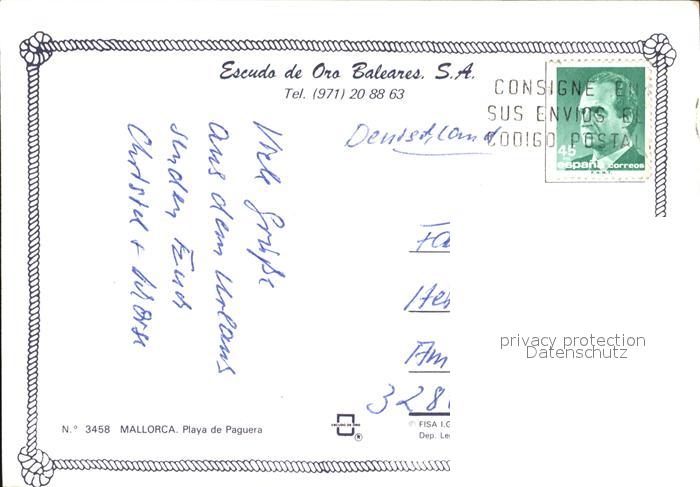 Escudo de Oro Baleares, S.A.
Tel. (971) 20 88 63
CONSIGNE EN
SUS ENVIOS EL
CODIGO POSTA
45
españa correos
F.N.M.T.
Deutschland
Viele Grüße
aus dem Urlaub
senden Euch
Christel +
Fa
Her
Am
328
privacy protection
Datenschutz
N.° 3458 MALLORCA. Playa de Paguera
ESCUDO DE ORO
®
© FISA I.G
Dep. Le